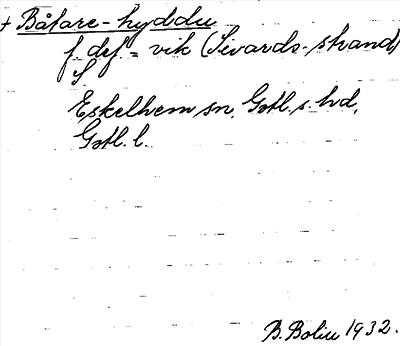 + Båtare-hyddu
f def = vik (Sivards-strand)
S
Eskelhem sn. Gotl. s. hd,
Gotl. l.
B. Bolin 1932.